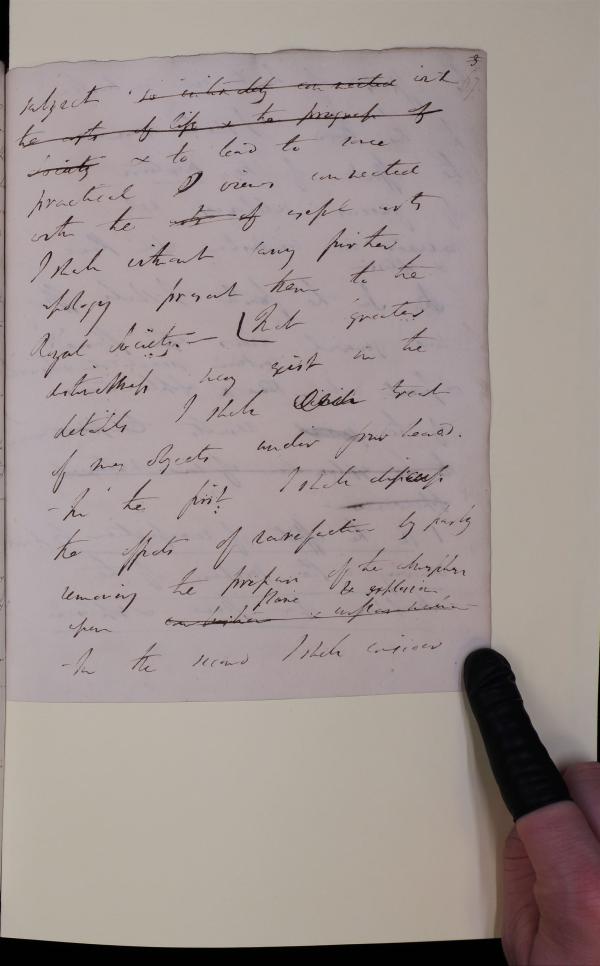 3
subject is intimately connected with
the arts of life & the progress of
society & to lead to some
practical views connected
with the arts of useful arts
I shall without any further
apology present them to the
Royal Society.— That greater
distinctness may exist in the
details I shall treat
of my objects under four heads.
- In the first I shall discuss
the effects of rarefaction by partly
removing the pressure of the atmosphere
flame & explosion
upon combustion
- In the second I shall consider